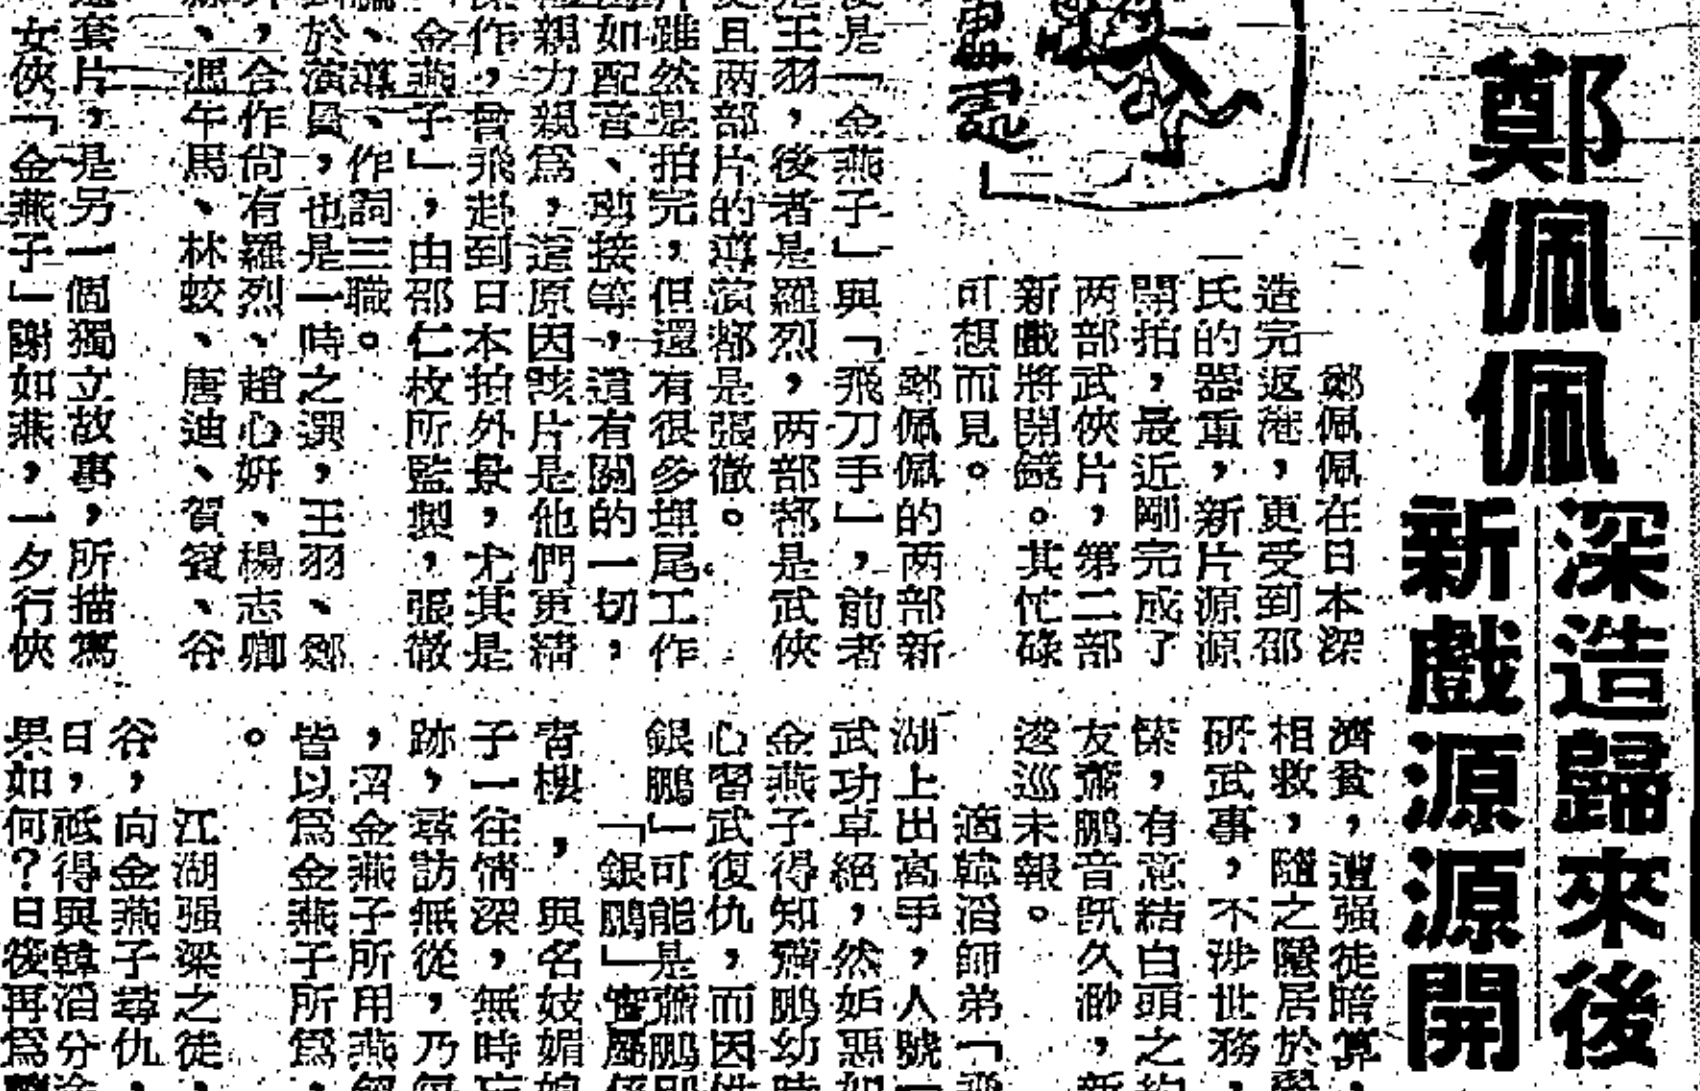 鄭佩佩
深造歸來後
新戲源源開
鄭佩佩在日本深
造完返港，更受到邵
氏的器重，新片源源
開拍，最近剛完成了
两部武俠片，第二部
新戲將開鏡。其忙碌
可想而見。
鄭佩佩的两部新
是「金燕子」與「飛刀手」，前者
王羽，後者是羅烈，两部都是武俠
且两部片的導演都是張徹。
雖然是拍完，但還有很多埋尾工作
如配音、剪接等，這有關的一切，
親力親爲，這原因該片是他們更精
作，曾飛赴到日本拍外景，尤其是
金燕子」，由邵仁枚所監製，張徹
、導、作詞三職。
於演員，也是一時之選，王羽、鄭
，合作尚有羅烈、趙心妍、楊志卿
、馮午馬、林蛟、唐迪、賀賓、谷
套片，是另一個獨立故事，所描寫
女俠「金燕子」謝如燕，一夕行俠
濟貧，遭强徒暗算，
相救，隨之隱居於
研武事，不涉世務，
愫，有意結白頭之約
友蕭鵬音訊久渺，新
逡巡未報。
適韓滔師弟「飛
湖上出高手，人號「
武功卓絕，然妬惡如
金燕子得知蕭鵬幼時
心習武復仇，而因性
銀鵬」可能是蕭鵬即
「銀鵬」實屬係
青樓，與名妓媚娘
子一往情深，無時忘
跡，尋訪無從，乃每
，留金燕子所用燕
皆以爲金燕子所爲，
。
江湖强梁之徒，
谷，向金燕子尋仇，
日，祗得與韓滔分途
果如何？日後再爲